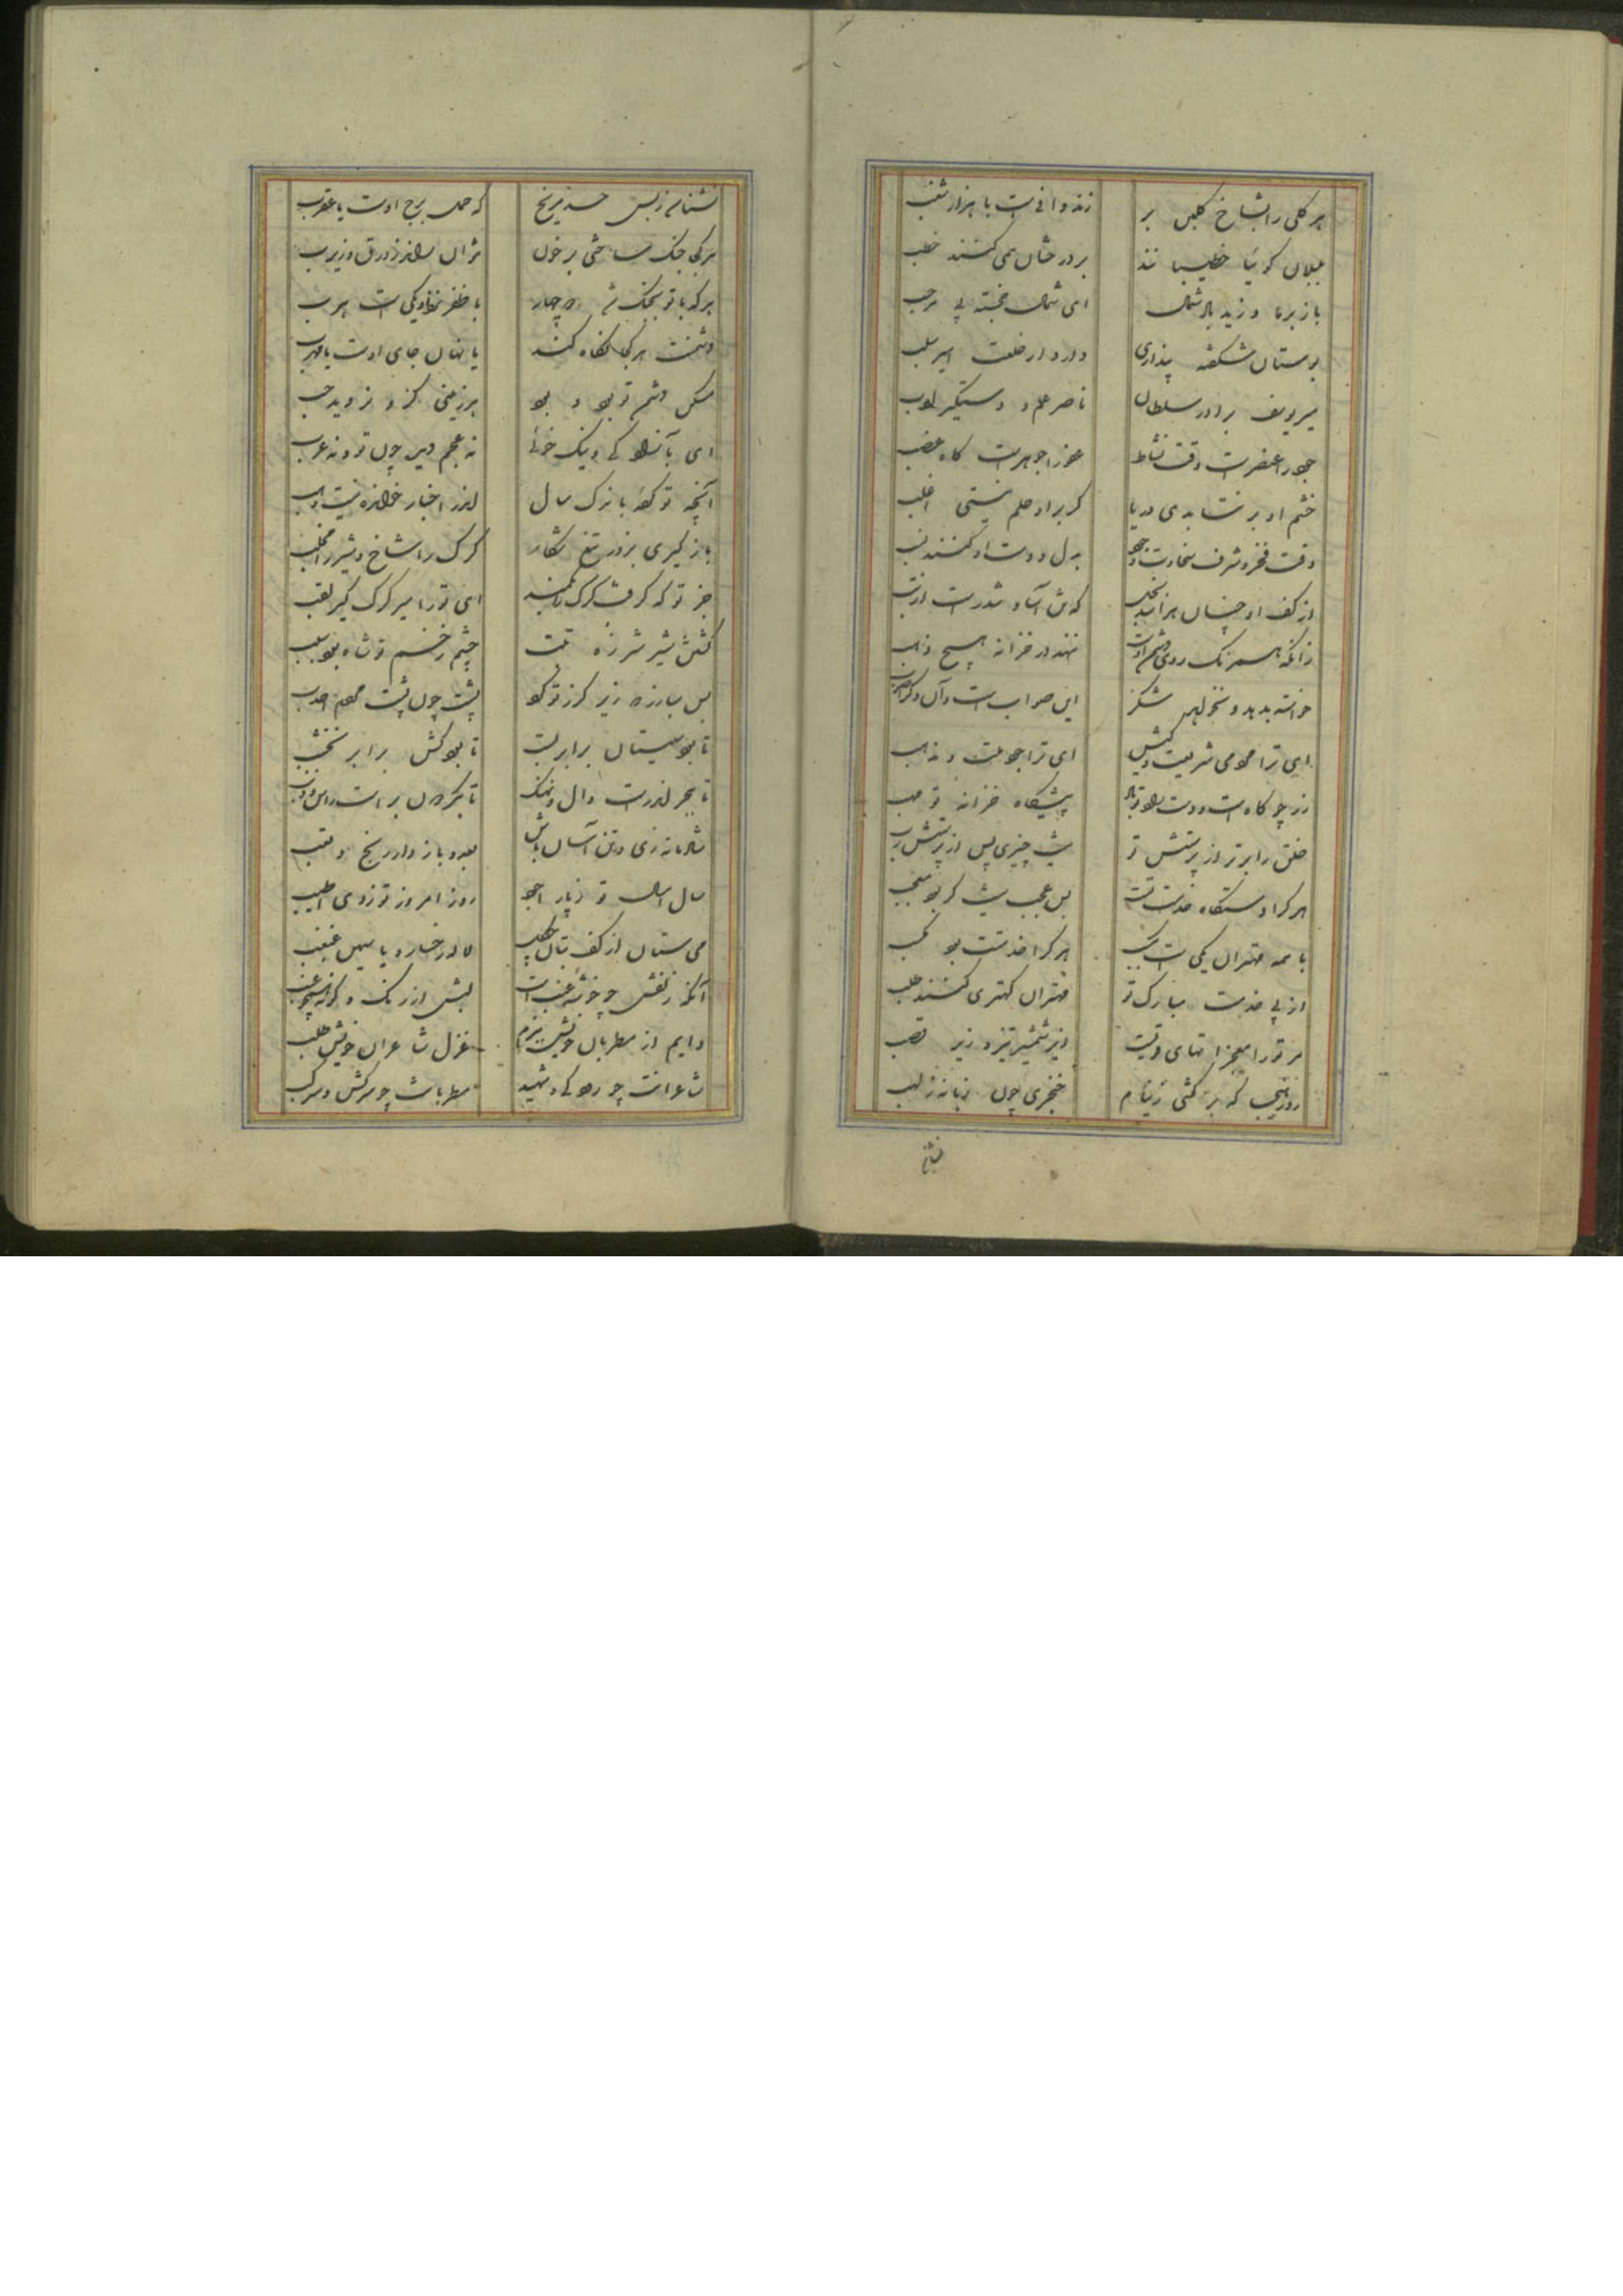 هر گلی را بشاخ گلبن بر
زندوافی است با هزار شغب
بلبلان گوئیا خطیبانند
بر درختان همی کنند خطب
باز بر ما وزید باد شمال
ای شمال خجسته پی مرحب
بوستان شکفته پنداری
دارد از خلعت امیر سلب
میر یوسف برادر سلطان
ناصر علم و دستگیر ادب
جود را عنصرست وقت نشاط
عفو را جوهرست گاه غضب
خشم او برنتابدی دریا
گر بر او حلم نیستی اغلب
وقت فخر و شرف سخاوت و جود
بدل و دست او کنند نسب
از کف او چنان هراسد بخل
که تن آسان و تندرست از تب
زانکه همرنگ روی دشمن اوست
ننهد در خزانه هیچ ذهب
خواسته بدهد و نخواهد شکر
این صوابست و آن دگر اصوب
ای ترا مردمی شریعت و کیش
ای ترا جود ملت و مذهب
زر چو کاه است و دست راد تو باد
پیشگاه خزانهٔ تو مهب
خلق را برتر از پرستش تو
نیست چیزی پس از پرستش رب
هر که را دستگاه خدمت تست
بس عجب نیست گر بود معجب
با همه مهتران یکی است بکسب
هر که را خدمتت بود مکسب
از پی خدمت مبارک تو
مهتران کهتری کنند طلب
مر تو را معجزاتهای قویست
زیر شمشیر تیز و زیر قصب
روز هیجا که برکشی ز نیام
خنجری چون زبانهٔ ز لهب
نشنا
نشناسد ز بس حسد مریخ
که حمل برج اوست یا عقرب
هر کجا جنگ ساختی بر خون
بتوان راند زورق و زبزب
هر که با تو بجنگ شد
با ظفر نزد او یکی است هرب
دشمنت هر کجا نگاه کند
یا نهان جای اوست یا مهرب
مسکن دشمن تو بود و بود
هر زمینی کز او نروید حب
ای بآزادگی و نیک خوئی
نه عجم دید چون تو و نه عرب
آنچه تو کردهٔ باندک سال
اندر اخبار خوانده نیست وهب
باز گیری بزور تیغ شکار
کرگ را شاخ و شیر را مخلب
جز تو که گرفت کرگ را بکمند
ای تو را میر کرگ گیر لقب
کشتن شیر شرزه تب تست
چشم زخم تو شاه بود سبب
بس مبارز که زیر گرز تو کرد
پشت چون پشت مردم احدب
تا بود سیستان برابر بست
تا بود کش برابر نخشب
تا ببحر اندر است وال و نهنگ
تا بگردون بر است راس و ذنب
شادمانه زی و تن آسان باش
بعدو باز دار رنج و تعب
سال امسال تو ز پار اجود
روز امروز تو ز دی اطیب
می ستان از کف بتان چگل
لاله رخسار و یاسمین غبغب
آنکه زلفش چو خوشهٔ عنب است
لبش از رنگ و گونه چو عنب
دایم از مطربان خویش ببزم
غزل شاعران خویش طلب
شاعرانت چو رودکی و شهید
مطربانت چو سرکش و سرکب